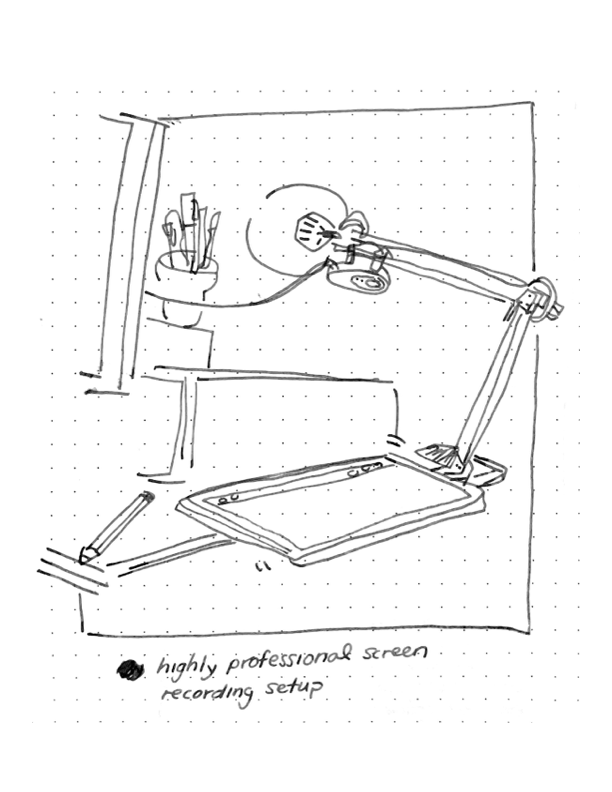 highly professional screen
recording setup